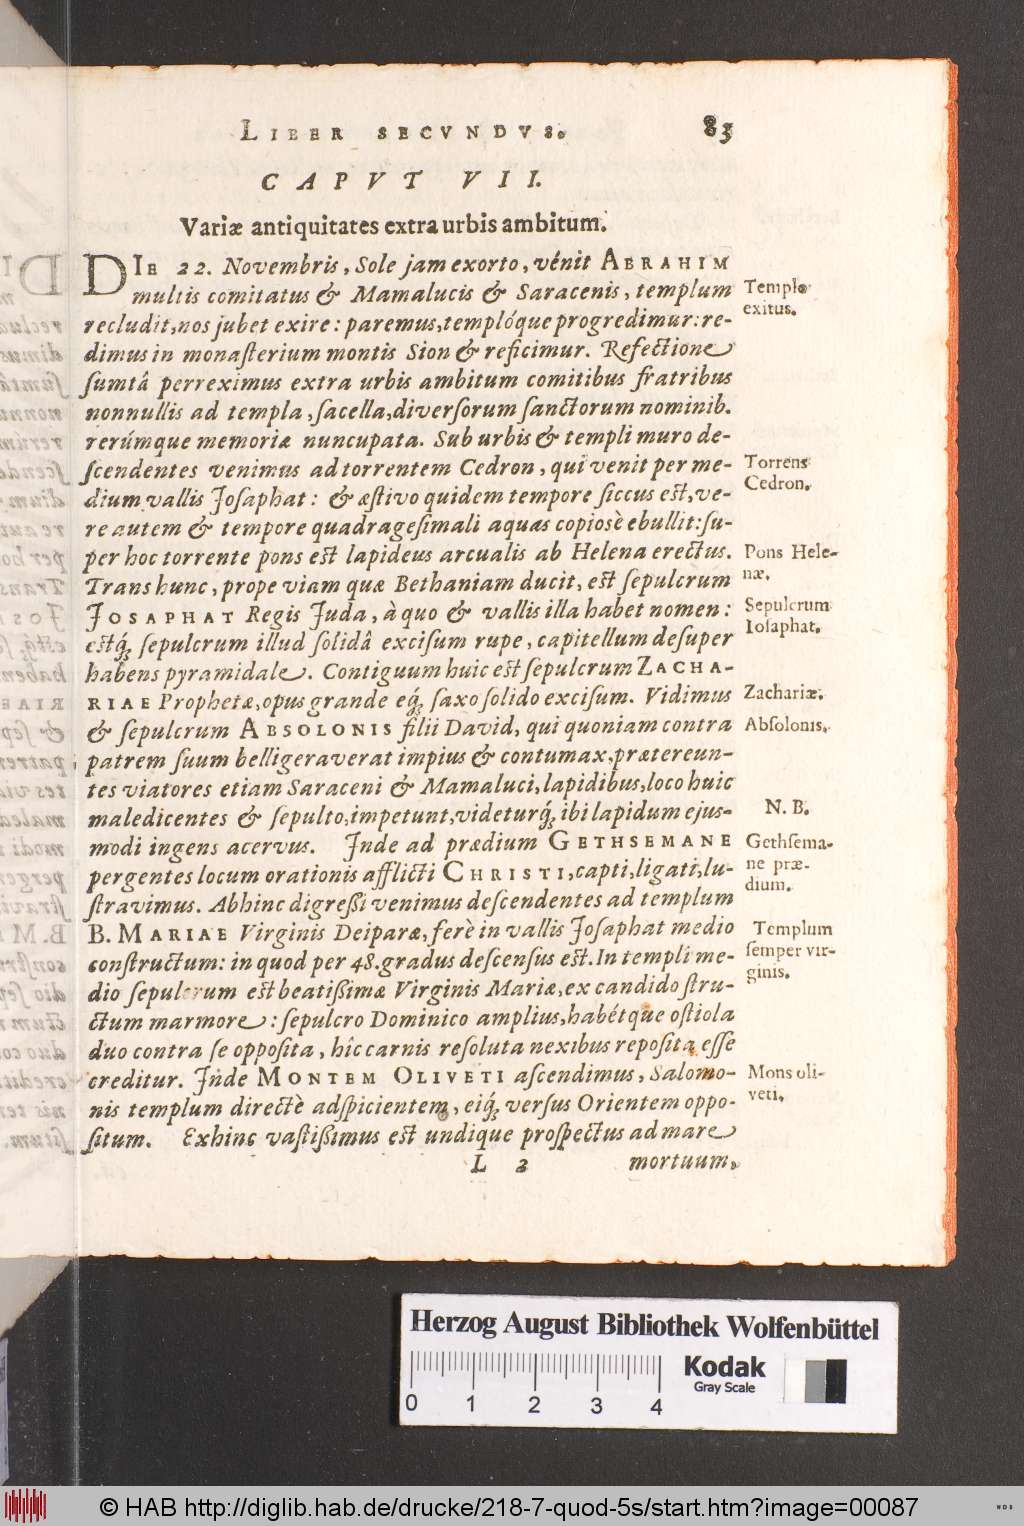 LIBER SECVNDVS. 83
CAPVT VII.
Variæ antiquitates extra urbis ambitum.
DIE 22. Novembris, Sole jam exorto, vénit ABRAHIM
multis comitatus & Mamalucis & Saracenis, templum
recludit, nos jubet exire: paremus, templóque progredimur: re-
dimus in monaſterium montis Sion & reficimur. Refectione
ſumtâ perreximus extra urbis ambitum comitibus fratribus
nonnullis ad templa, ſacella, diverſorum ſanctorum nominib.
rerúmque memoriæ nuncupata. Sub urbis & templi muro de-
ſcendentes venimus ad torrentem Cedron, qui venit per me-
dium vallis Joſaphat: & æſtivo quidem tempore ſiccus eſt, ve-
re autem & tempore quadrageſimali aquas copiosè ebullit: ſu-
per hoc torrente pons eſt lapideus arcualis ab Helena erectus.
Trans hunc, prope viam quæ Bethaniam ducit, eſt ſepulcrum
JOSAPHAT Regis Juda, à quo & vallis illa habet nomen:
eſtq́; ſepulcrum illud ſolidâ exciſum rupe, capitellum deſuper
habens pyramidale. Contiguum huic eſt ſepulcrum ZACHA-
RIAE Prophetæ, opus grande eq́; ſaxo ſolido exciſum. Vidimus
& ſepulcrum ABSOLONIS filii David, qui quoniam contra
patrem ſuum belligeraverat impius & contumax, prætereun-
tes viatores etiam Saraceni & Mamaluci, lapidibus, loco huic
maledicentes & ſepulto, impetunt, videturq́; ibi lapidum ejus-
modi ingens acervus. Inde ad prædium GETHSEMANE
pergentes locum orationis afflicti CHRISTI, capti, ligati, lu-
ſtravimus. Abhinc digreßi venimus deſcendentes ad templum
B. MARIAE Virginis Deiparæ, ferè in vallis Joſaphat medio
conſtructum: in quod per 48. gradus deſcenſus eſt. In templi me-
dio ſepulcrum eſt beatißimæ Virginis Mariæ, ex candido ſtru-
ctum marmore: ſepulcro Dominico amplius, habétque oſtiola
duo contra ſe oppoſita, hîc carnis reſoluta nexibus repoſita eſſe
creditur. Inde MONTEM OLIVETI aſcendimus, Salomo-
nis templum directè adſpicientem, eiq́; verſus Orientem oppo-
ſitum. Exhinc vaſtißimus eſt undique proſpectus ad mare
L 2 mortuum.
Templo
exitus.
Torrens
Cedron.
Pons Hele-
næ.
Sepulcrum
Ioſaphat.
Zachariæ.
Abſolonis.
N. B.
Gethſema-
ne præ-
dium.
Templum
ſemper vir-
ginis.
Mons oli-
veti.
Herzog August Bibliothek Wolfenbüttel
0 1 2 3 4
Kodak
Gray Scale
© HAB http://diglib.hab.de/drucke/218-7-quod-5s/start.htm?image=00087